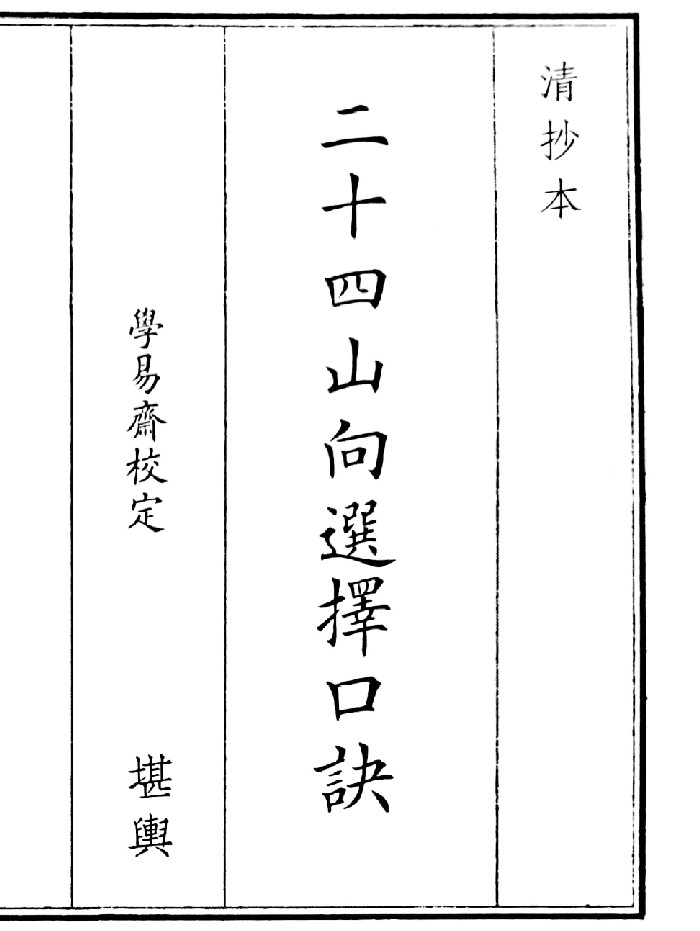 清抄本
二十四山向選擇口訣
學易齋校定
堪輿